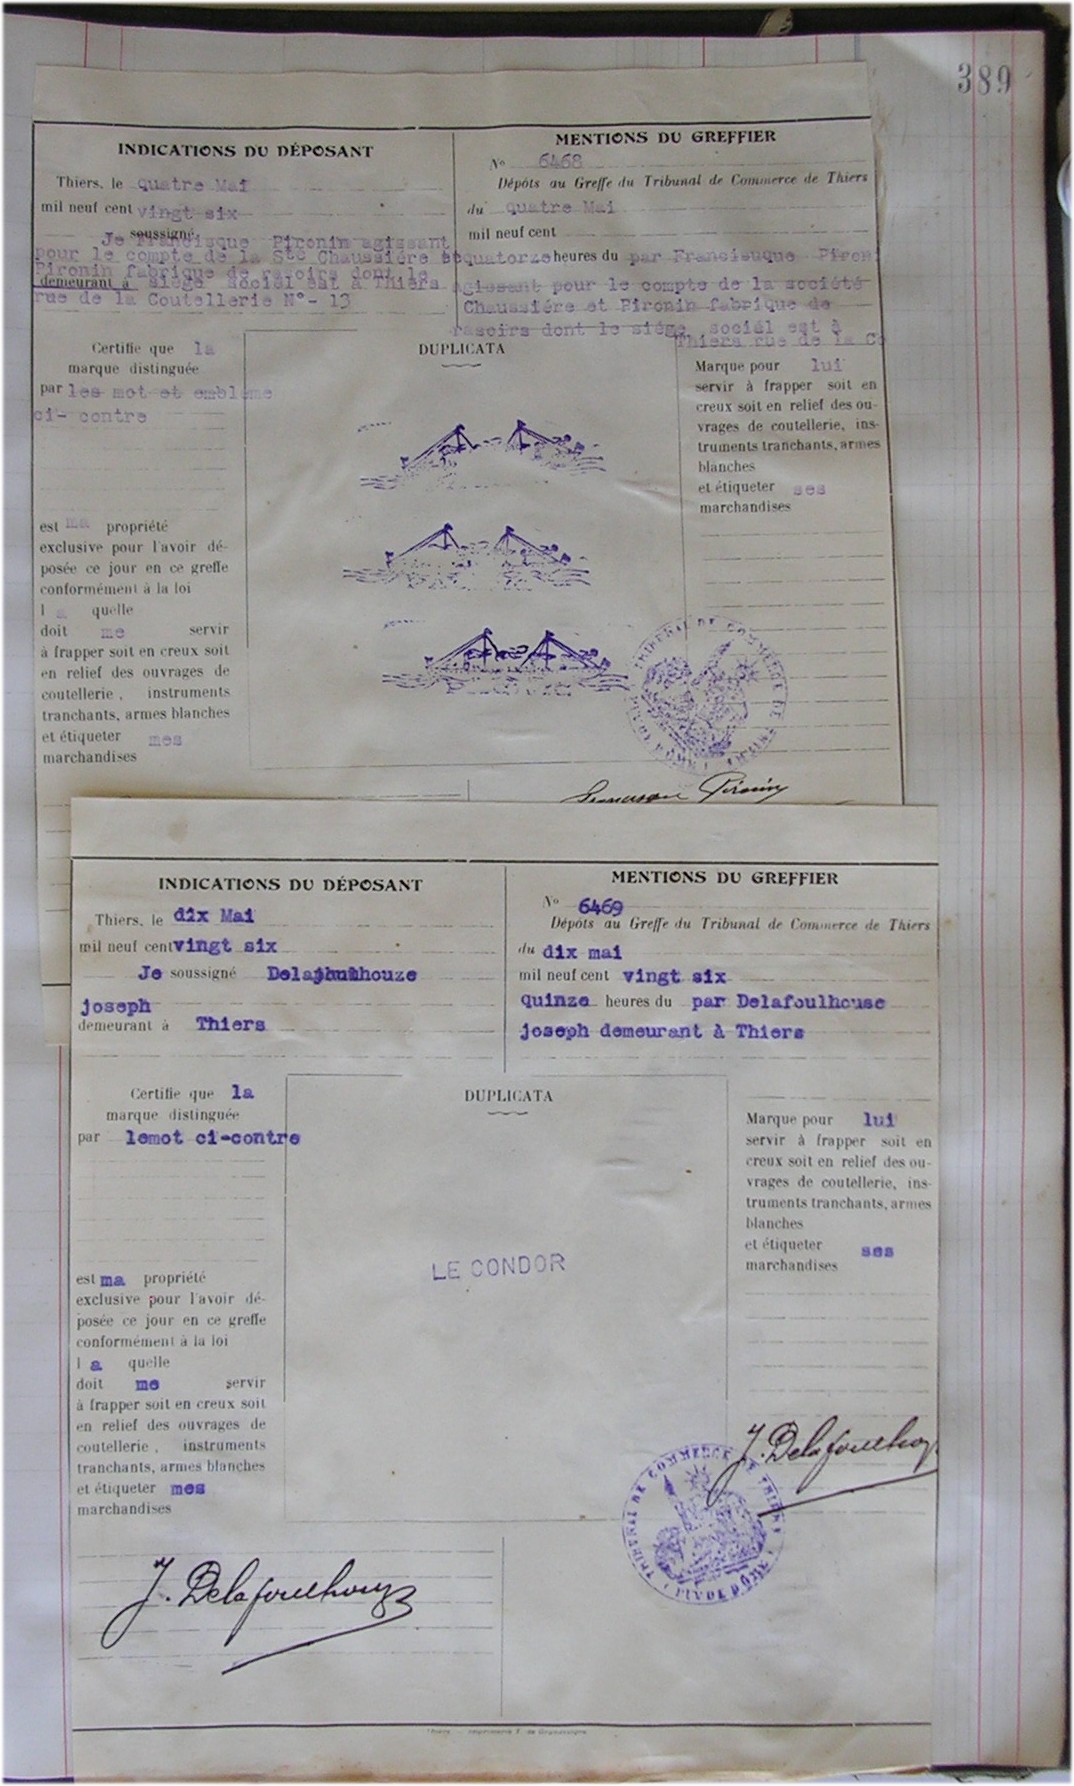 389
INDICATIONS DU DÉPOSANT
Thiers, le quatre Mai
mil neuf cent vingt six
soussigné,
Je Francisque Pironin agissant
pour le compte de la Sté Chaussiére et
Pironin fabrique de rasoirs dont le
demeurant à siége social est à Thiers
rue de la Coutellerie N°- 13
MENTIONS DU GREFFIER
No 6468
Dépôts au Greffe du Tribunal de Commerce de Thiers
du quatre Mai
mil neuf cent
quatorze heures du par Francisuque Piron
agissant pour le compte de la société
Chaussiére et Pironin fabrique de
rasoirs dont le siége social est à
Thiers rue de la Co
Certifie que la
marque distinguée
par les mot et embléme
ci- contre
est ma propriété
exclusive pour l'avoir dé-
posée ce jour en ce greffe
conformément à la loi
l a quelle
doit me servir
à frapper soit en creux soit
en relief des ouvrages de
coutellerie, instruments
tranchants, armes blanches
et étiqueter mes
marchandises
DUPLICATA
Marque pour lui
servir à frapper soit en
creux soit en relief des ou-
vrages de coutellerie, ins-
truments tranchants, armes
blanches
et étiqueter ses
marchandises
TRIBUNAL DE COMMERCE DE THIERS
Pironin
INDICATIONS DU DÉPOSANT
Thiers, le dix Mai
mil neuf cent vingt six
Je soussigné
joseph
demeurant à Thiers
MENTIONS DU GREFFIER
No 6469
Dépôts au Greffe du Tribunal de Commerce de Thiers
du dix mai
mil neuf cent vingt six
quinze heures du par Delafoulhouse
joseph demeurant à Thiers
Certifie que la
marque distinguée
par lemot ci-contre
est ma propriété
exclusive pour l'avoir dé-
posée ce jour en ce greffe
conformément à la loi
l a quelle
doit me servir
à frapper soit en creux soit
en relief des ouvrages de
coutellerie, instruments
tranchants, armes blanches
et étiqueter mes
marchandises
DUPLICATA
LE CONDOR
Marque pour lui
servir à frapper soit en
creux soit en relief des ou-
vrages de coutellerie, ins-
truments tranchants, armes
blanches
et étiqueter ses
marchandises
J. Delafoulhouz
TRIBUNAL DE COMMERCE DE THIERS
PUY DE DÔME
J. Delafoulhouze